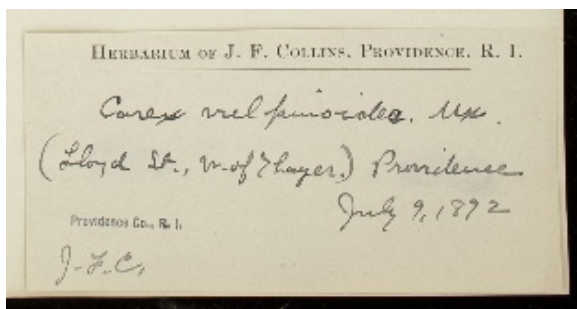 HERBARIUM OF J. F. COLLINS, PROVIDENCE, R. I.
Carex vulpinoidea, Mx.
(Lloyd St., W. of Thayer.) Providence
July 9, 1892
Providence Co., R. I.
J. F. C.